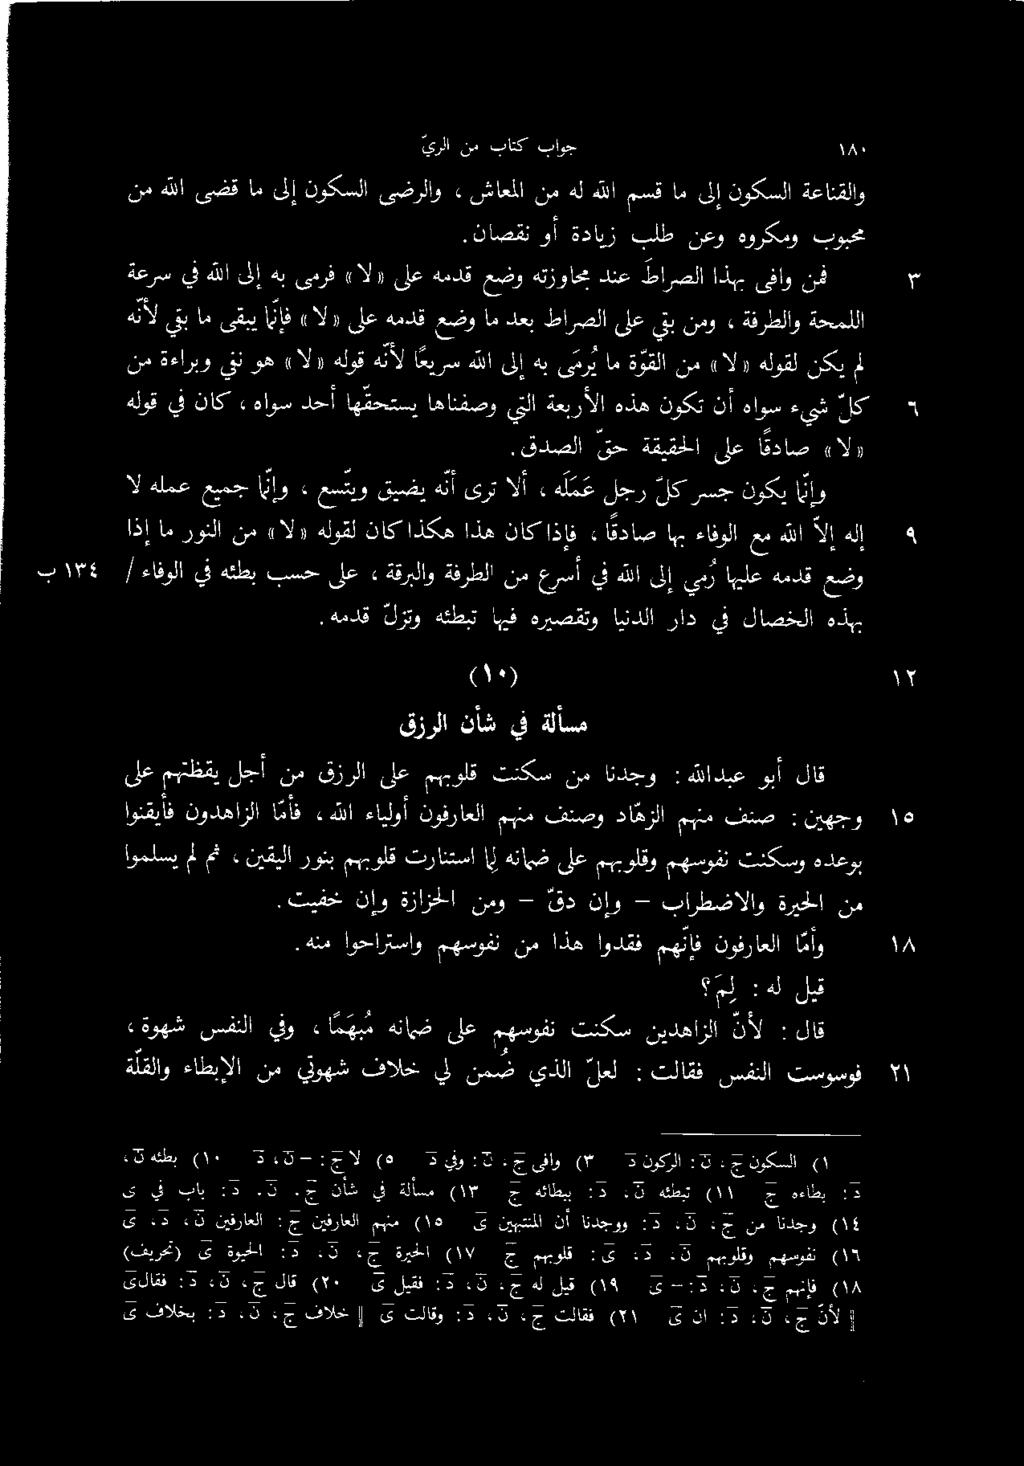 ١٨٠ جواب كتاب من الريّ
والقناعة السكون إلى ما قسم الله له من المعاش ، والرضى السكون إلى ما قضى الله من
محبوب ومكروه وعن طلب زيادة أو نقصان .
٣ فمن وافى بهذا الصراط عند مجاوزته وضع قدمه على «لا» فرمى به إلى الله في سرعة
اللمحة والطرفة ، ومن بقي على الصراط بعد ما وضع قدمه على «لا» فإنّما يبقى ما بقي لأنّه
لم يكن لقوله «لا» من القوّة ما يُرمَى به إلى الله سريعًا لأنّه قوله «لا» هو نفي وبراءة من
٦ كلّ شيء سواه أن تكون هذه الأربعة التي وصفناها يستحقّها أحد سواه ، كان في قوله
«لا» صادقًا على الحقيقة حقّ الصدق .
وإنّما يكون جسر كلّ رجل عَمَلَه ، ألا ترى أنّه يضيق ويتّسع ، وإنّما جميع عمله لا
٩ إله إلّا الله مع الوفاء بها صادقًا ، فإذا كان هذا هكذا كان لقوله «لا» من النور ما إذا
وضع قدمه عليها رُمي إلى الله في أسرع من الطرفة والبرقة ، على حسب بطئه في الوفاء / ١٣٤ ب
بهذه الخصال في دار الدنيا وتقصيره فيها تبطئه وتزلّ قدمه .
١٢ (١٠)
مسألة في شأن الرزق
قال أبو عبدالله : وجدنا من سكنت قلوبهم على الرزق من أجل يقظتهم على
١٥ وجهين : صنف منهم الزهّاد وصنف منهم العارفون أولياء الله ، فأمّا الزاهدون فأيقنوا
بوعده وسكنت نفوسهم وقلوبهم على ضمانه لِما استنارت قلوبهم بنور اليقين ، ثم لم يسلموا
من الحيرة والاضطراب – وإن دقّ – ومن الحزازة وإن خفيت .
١٨ وأمّا العارفون فإنّهم فقدوا هذا من نفوسهم واستراحوا منه .
قيل له : لِمَ ؟
قال : لأنّ الزاهدين سكنت نفوسهم على ضمانه مُبهَمًا ، وفي النفس شهوة ،
٢١ فوسوست النفس فقالت : لعلّ الذي ضُمن لي خلاف شهوتي من الإبطاء والقلّة
١) السكون ج ، ن : الركون د ٣) وافى ج ، ن : وفي د ٥) لا ج : – ن ، د ١٠) بطئه ن ،
د : بطاءه ج ١١) تبطئه ن ، د : ببطائه ج ١٣) مسألة في شأن ج . ن . د : باب في ى
١٤) وجدنا من ج ، ن ، د : ووجدنا أن المنتبهين ى ١٥) منهم العارفين ج : العارفين ن ، د ، ى
١٦) نفوسهم وقلوبهم ن ، د ، ى : قلوبهم ج ١٧) الحيرة ج ، ن ، د : الحيوة ى (تحريف)
١٨) فإنهم ج ، ن ، د : – ى ١٩) قيل له ج ، ن ، د : فقيل ى ٢٠) قال ج ، ن ، د : فقال ى
‖ لأنّ ج ، ن ، د : ان ى ٢١) فقالت ج ، ن ، د : وقالت ى ‖ خلاف ج ، ن ، د : بخلاف ى